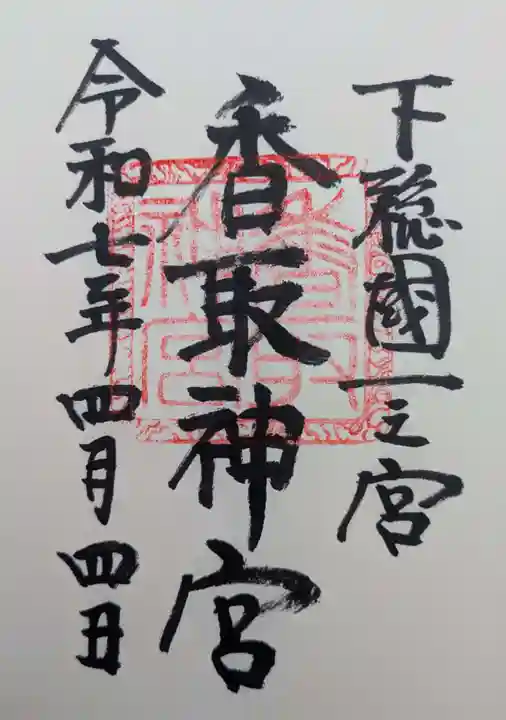 下総國一之宮
香取神宮
令和七年四月四日